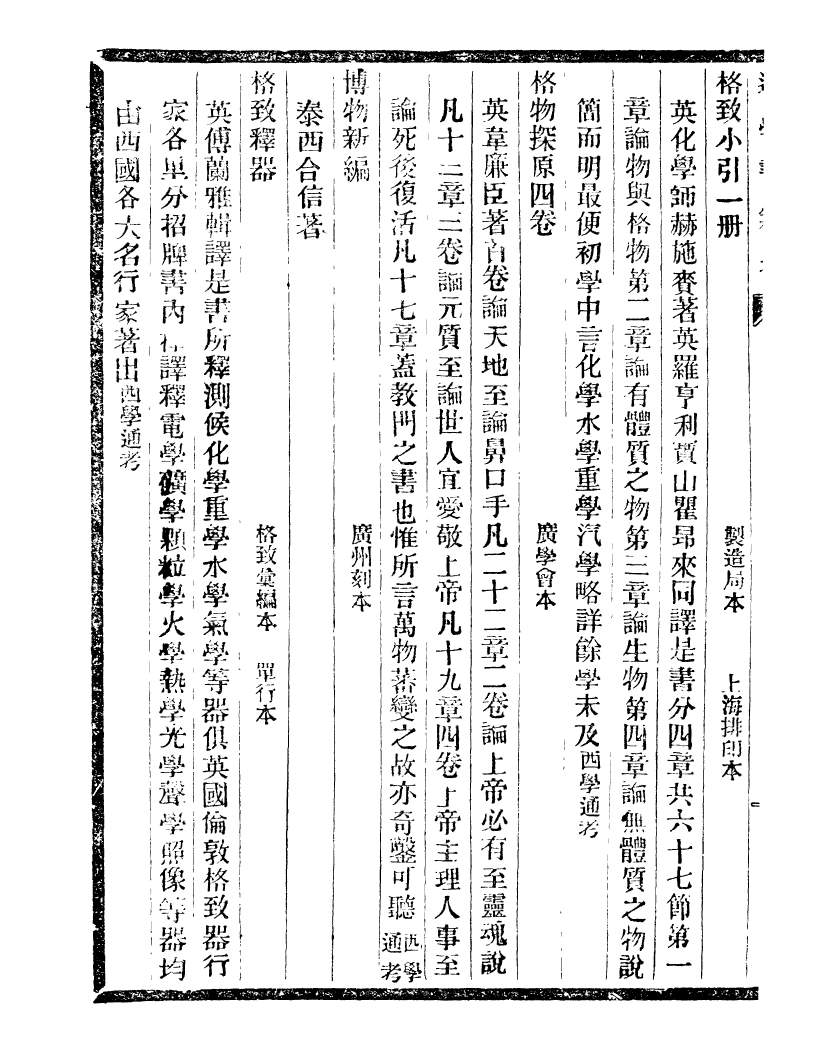 格致小引一册　製造局本　上海排印本
英化學師赫施賚著英羅亨利寶山瞿昂來同譯是書分四章共六十七節第一
章論物與格物第二章論有體質之物第三章論生物第四章論無體質之物說
簡而明最便初學中言化學水學重學汽學略詳餘學未及西學通考
格物探原四卷　廣學會本
英韋廉臣著首卷論天地至論鼻口手凡二十二章二卷論上帝必有至靈魂說
凡十二章三卷論元質至論世人宜愛敬上帝凡十九章四卷上帝主理人事至
論死後復活凡十七章蓋教門之書也惟所言萬物蕃變之故亦奇鑿可聽西學通考
博物新編　廣州刻本
泰西合信著
格致釋器　格致彙編本　單行本
英傅蘭雅輯譯是書所釋測候化學重學水學氣學等器俱英國倫敦格致器行
家各單分招牌書內譯釋電學礦學顆粒學火學熱學光學聲學照像等器均
由西國各大名行家著出西學通考